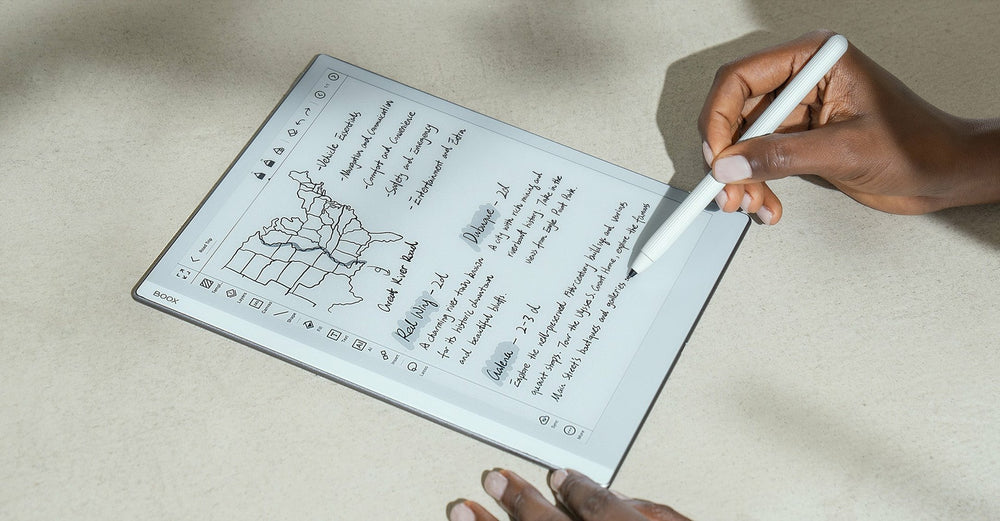 BOOX
Road Trip
Layers
Fill
Text
AI
Insert
Lasso
Sync
More
Vehicle Essentials
- Navigation and Communication
- Comfort and Convenience
- Safety and Emergency
- Entertainment and Extra
Great River Road
Red Wing - 2d
A charming river town known
for its historic downtown
and beautiful bluffs.
Dubuque - 2d
A city with rich mining and
riverboat history. Take in the
views from Eagle Point Park.
Galena - 2-3 d
Explore the well-preserved 19th-century buildings and various
quaint shops. Tour the Ulysses S. Grant Home, explore the famous
Main Street's boutiques and galleries.